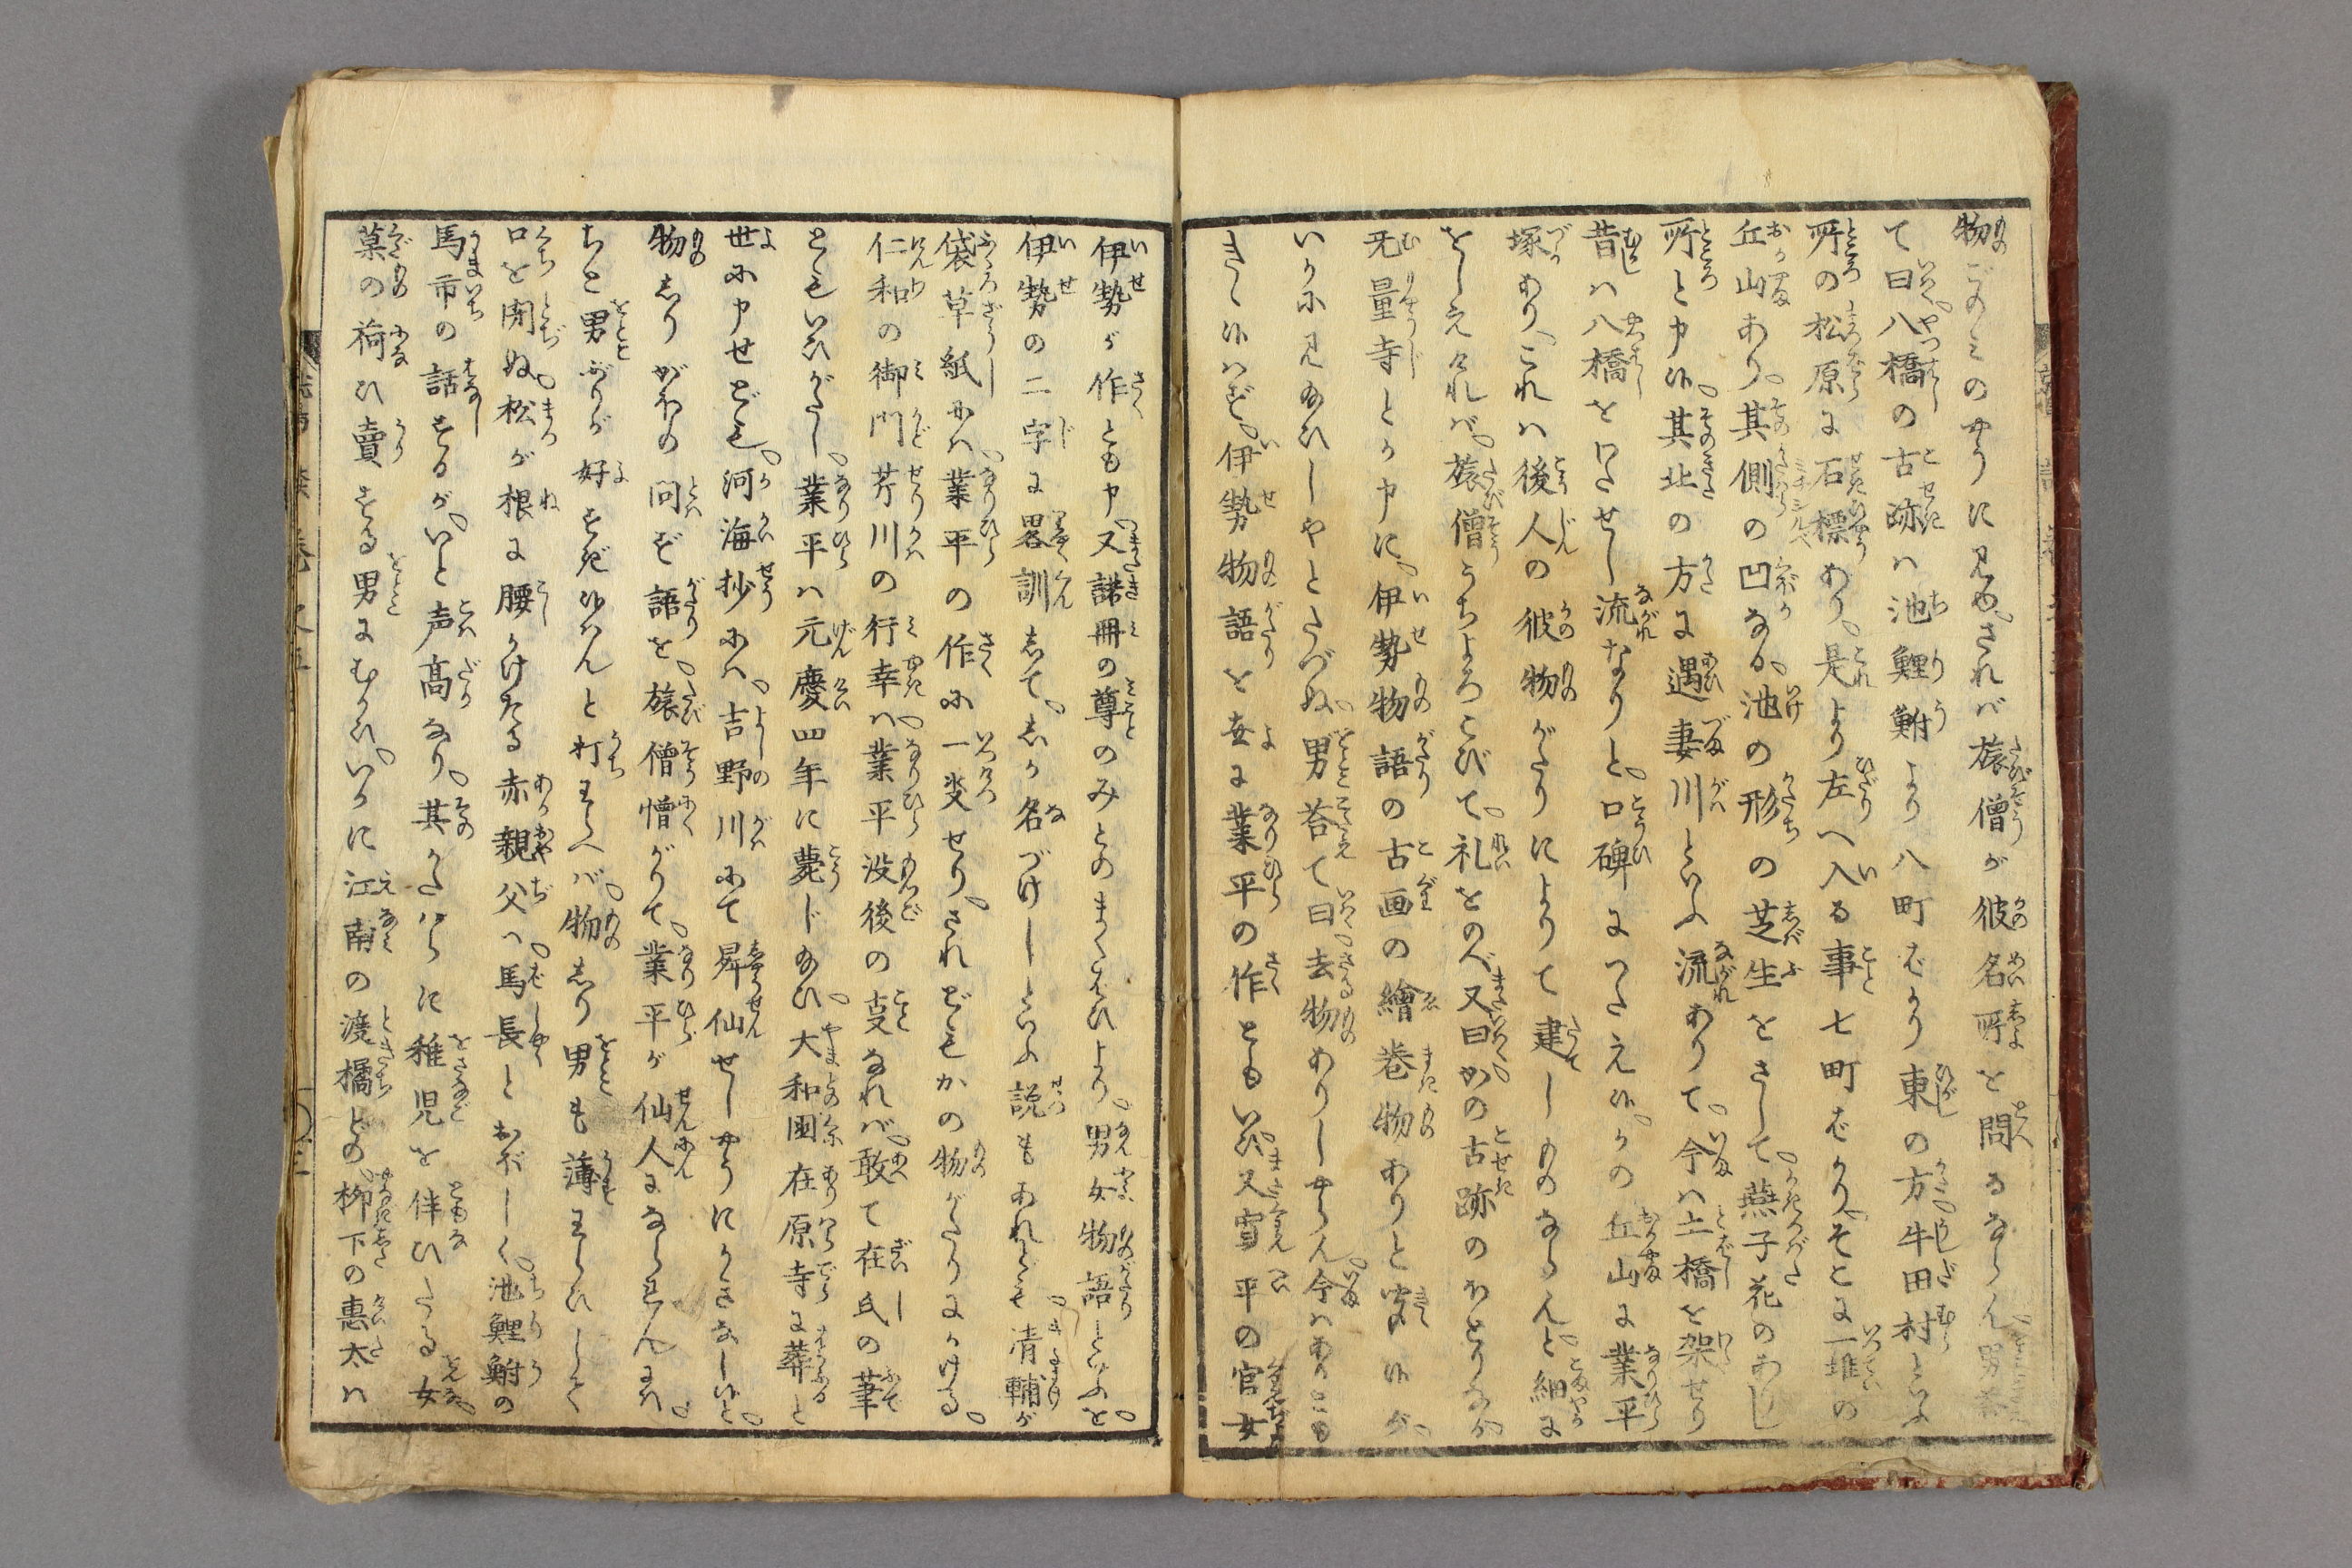 物ごのみのやうに見ゆ。されバ旅僧が彼名所を問ふならん。男答
て曰八橋の古跡ハ池鯉鮒より八町ばかり東の方牛田村といふ
所の松原に石標あり。是より左へ入る事七町ばかり。そこに一堆の
丘山あり。其側の凹なる。池の形の芝生をさして。燕子花のあとゝし
所と申候。其北の方に遇妻川といふ流ありて。今ハ土橋を架せり
昔ハ八橋をわたせし流なりと。口碑につたえ候。かの丘山に業平
塚あり。これハ後人の彼物がたりによりて建しものならんと。細に
をしえけれバ。旅僧うちよろこびて。礼をのべ又曰。かの古跡のほとりなる
无量寺とか申に。伊勢物語の古画の繪巻物ありと聞候が。
いかに見玉ひしやとたづぬ。男荅て曰。去物ありしやらん今ハあることを
きゝ候ハず。伊勢物語を世に業平の作ともいひ。又雪平の官女
伊勢が作とも申。又諾冊の尊のみとのまぐはひより。男女物語といふを
伊勢の二字に畧訓して。しか名づけしといふ説もあれども。清輔が
袋草紙にハ。業平の作に一決せり。されどもかの物がたりにかける。
仁和の御門芹川の行幸ハ。業平没後の叓なれバ。敢て在氏の筆
ともいひがたし。業平ハ元慶四年に薨じ玉ひ。大和國在原寺に葬と
世に申せども。河海抄にハ。吉野川にて昇仙せしやうにかきなし候と。
物しりがほの問ず語を。旅僧憎がりて。業平が仙人になられんにハ。
ちと男ぶりが好すぎ候はんと打わらへバ。物しり男も薄わらひしく
口を閉ぬ。松が根に腰かけたる赤親父ハ。馬長とおぼしく。池鯉鮒の
馬市の話するが。いと声高なり。其かたはらに稚児を伴ひたる女
菓の荷ひ賣する男にむかひ。いかに江南の渡橘どの。柳下の惠太ハ